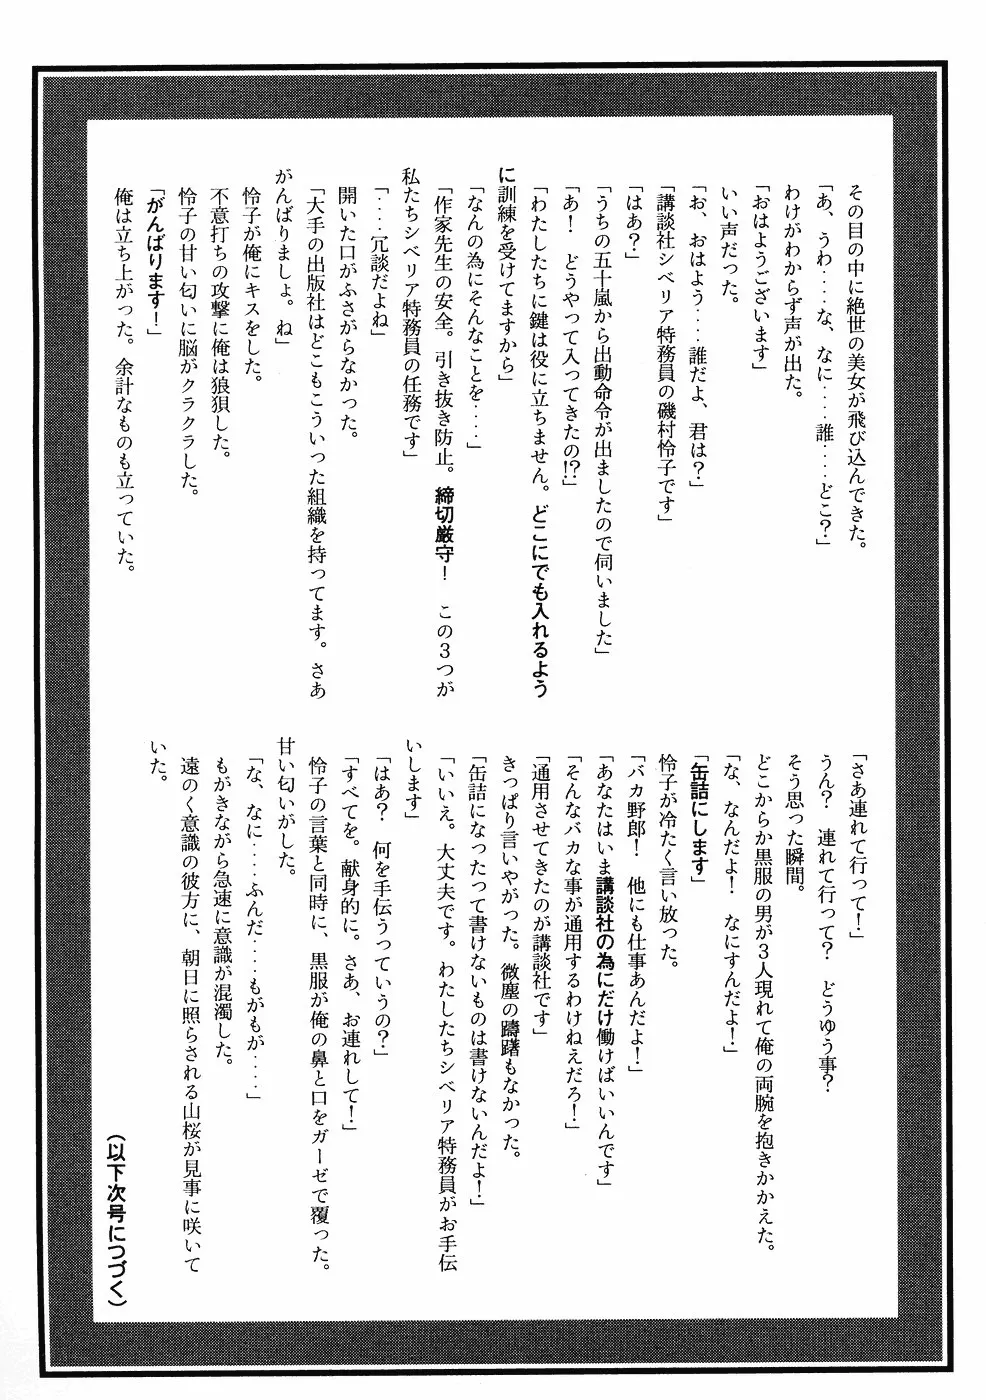 その目の中に絶世の美女が飛び込んできた。
「あ、うわ‥‥な、なに‥‥誰‥‥どこ？」
わけがわからず声が出た。
「おはようございます」
いい声だった。
「お、おはよう‥‥誰だよ、君は？」
「講談社シベリア特務員の磯村怜子です」
「はあ？」
「うちの五十嵐から出動命令が出ましたので伺いました」
「あ！　どうやって入ってきたの!?」
「わたしたちに鍵は役に立ちません。どこにでも入れるよう
に訓練を受けてますから」
「なんの為にそんなことを‥‥」
「作家先生の安全。引き抜き防止。締切厳守！　この３つが
私たちシベリア特務員の任務です」
「‥‥冗談だよね」
開いた口がふさがらなかった。
「大手の出版社はどこもこういった組織を持ってます。さあ
がんばりましょ。ね」
怜子が俺にキスをした。
不意打ちの攻撃に俺は狼狽した。
怜子の甘い匂いに脳がクラクラした。
「がんばります！」
俺は立ち上がった。余計なものも立っていた。
「さあ連れて行って！」
うん？　連れて行って？　どうゆう事？
そう思った瞬間。
どこからか黒服の男が３人現れて俺の両腕を抱きかかえた。
「な、なんだよ！　なにすんだよ！」
「缶詰にします」
怜子が冷たく言い放った。
「バカ野郎！　他にも仕事あんだよ！」
「あなたはいま講談社の為にだけ働けばいいんです」
「そんなバカな事が通用するわけねえだろ！」
「通用させてきたのが講談社です」
きっぱり言いやがった。微塵の躊躇もなかった。
「缶詰になったって書けないものは書けないんだよ！」
「いいえ。大丈夫です。わたしたちシベリア特務員がお手伝
いします」
「はあ？　何を手伝うっていうの？」
「すべてを。献身的に。さあ、お連れして！」
怜子の言葉と同時に、黒服が俺の鼻と口をガーゼで覆った。
甘い匂いがした。
「な、なに‥‥ふんだ‥‥もがもが‥‥」
もがきながら急速に意識が混濁した。
遠のく意識の彼方に、朝日に照らされる山桜が見事に咲いて
いた。
（以下次号につづく）